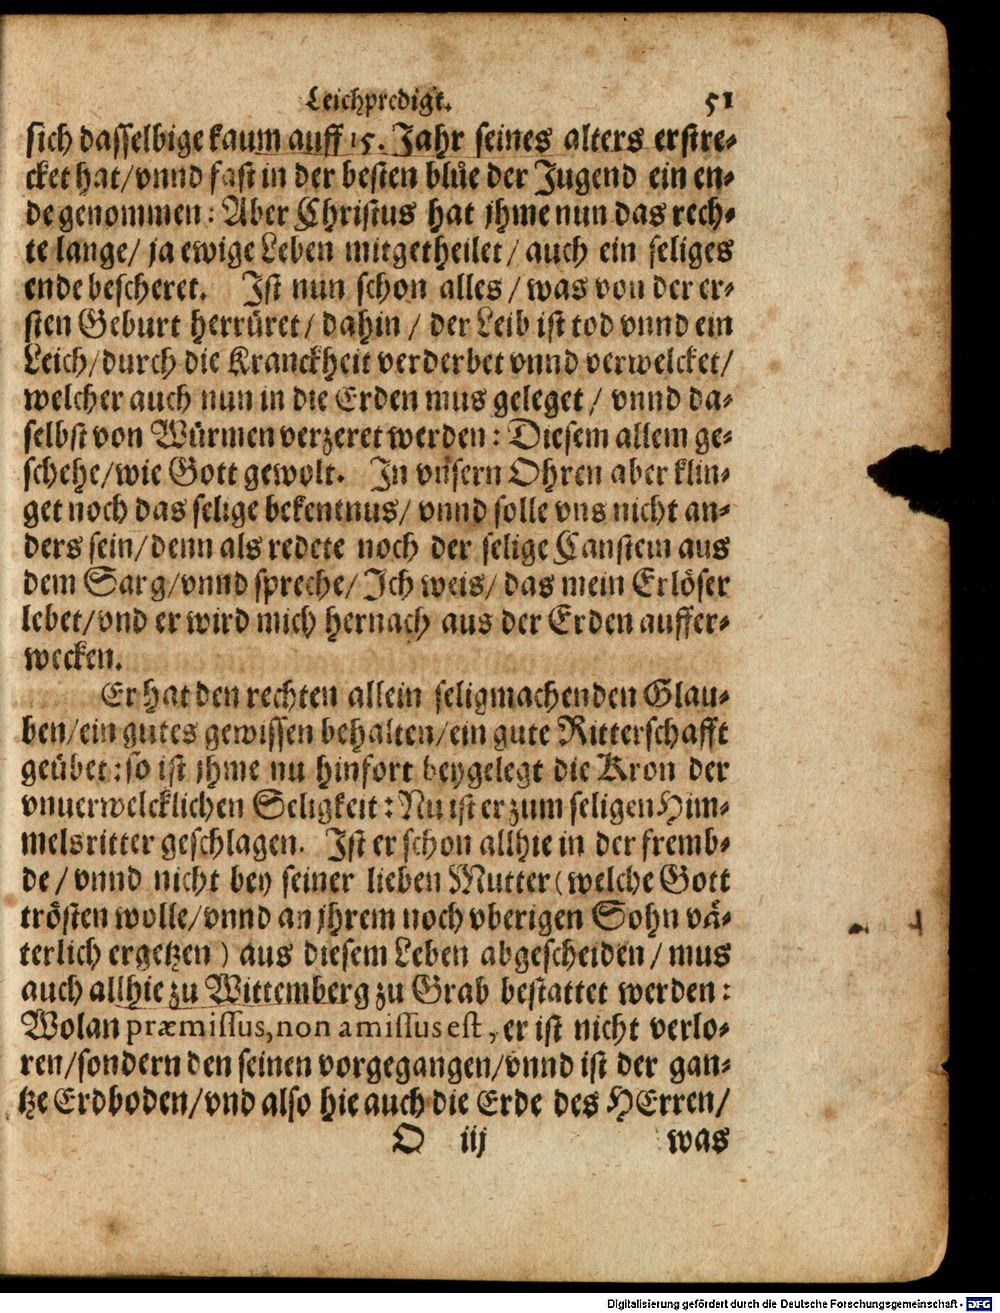 Leichpredigt. 51
sich dasselbige kaum auff 15. Jahr seines alters erstre-
cket hat/vnnd fast in der besten blüe der Jugend ein en-
de genommen: Aber Christus hat jhme nun das rech-
te lange/ ja ewige Leben mitgetheilet/ auch ein seliges
ende bescheret. Ist nun schon alles/ was von der er-
sten Geburt herrüret/ dahin / der Leib ist tod vnnd ein
Leich/durch die Kranckheit verderbet vnnd verwelcket/
welcher auch nun in die Erden mus geleget / vnnd da-
selbst von Würmen verzeret werden: Diesem allem ge-
schehe/wie Gott gewolt. In vnsern Ohren aber klin-
get noch das selige bekentnus/ vnnd solle vns nicht an-
ders sein/denn als redete noch der selige Canstein aus
dem Sarg/vnnd spreche/ Ich weis/ das mein Erlöser
lebet/vnd er wird mich hernach aus der Erden auffer-
wecken.
Er hat den rechten allein seligmachenden Glau-
ben/ein gutes gewissen behalten/ein gute Ritterschafft
geübet: so ist jhme nu hinfort beygelegt die Kron der
vnuerwelcklichen Seligkeit: Nu ist er zum seligen Him-
melsritter geschlagen. Ist er schon allhie in der fremb-
de / vnnd nicht bey seiner lieben Mutter (welche Gott
trösten wolle/vnnd an jhrem noch vberigen Sohn vä-
terlich ergetzen) aus diesem Leben abgescheiden/ mus
auch allhie zu Wittemberg zu Grab bestattet werden:
Wolan præmissus, non amissus est, er ist nicht verlo-
ren/sondern den seinen vorgegangen/vnnd ist der gan-
tze Erdboden/vnd also hie auch die Erde des HErren/
O iij was
Digitalisierung gefördert durch die Deutsche Forschungsgemeinschaft - DFG